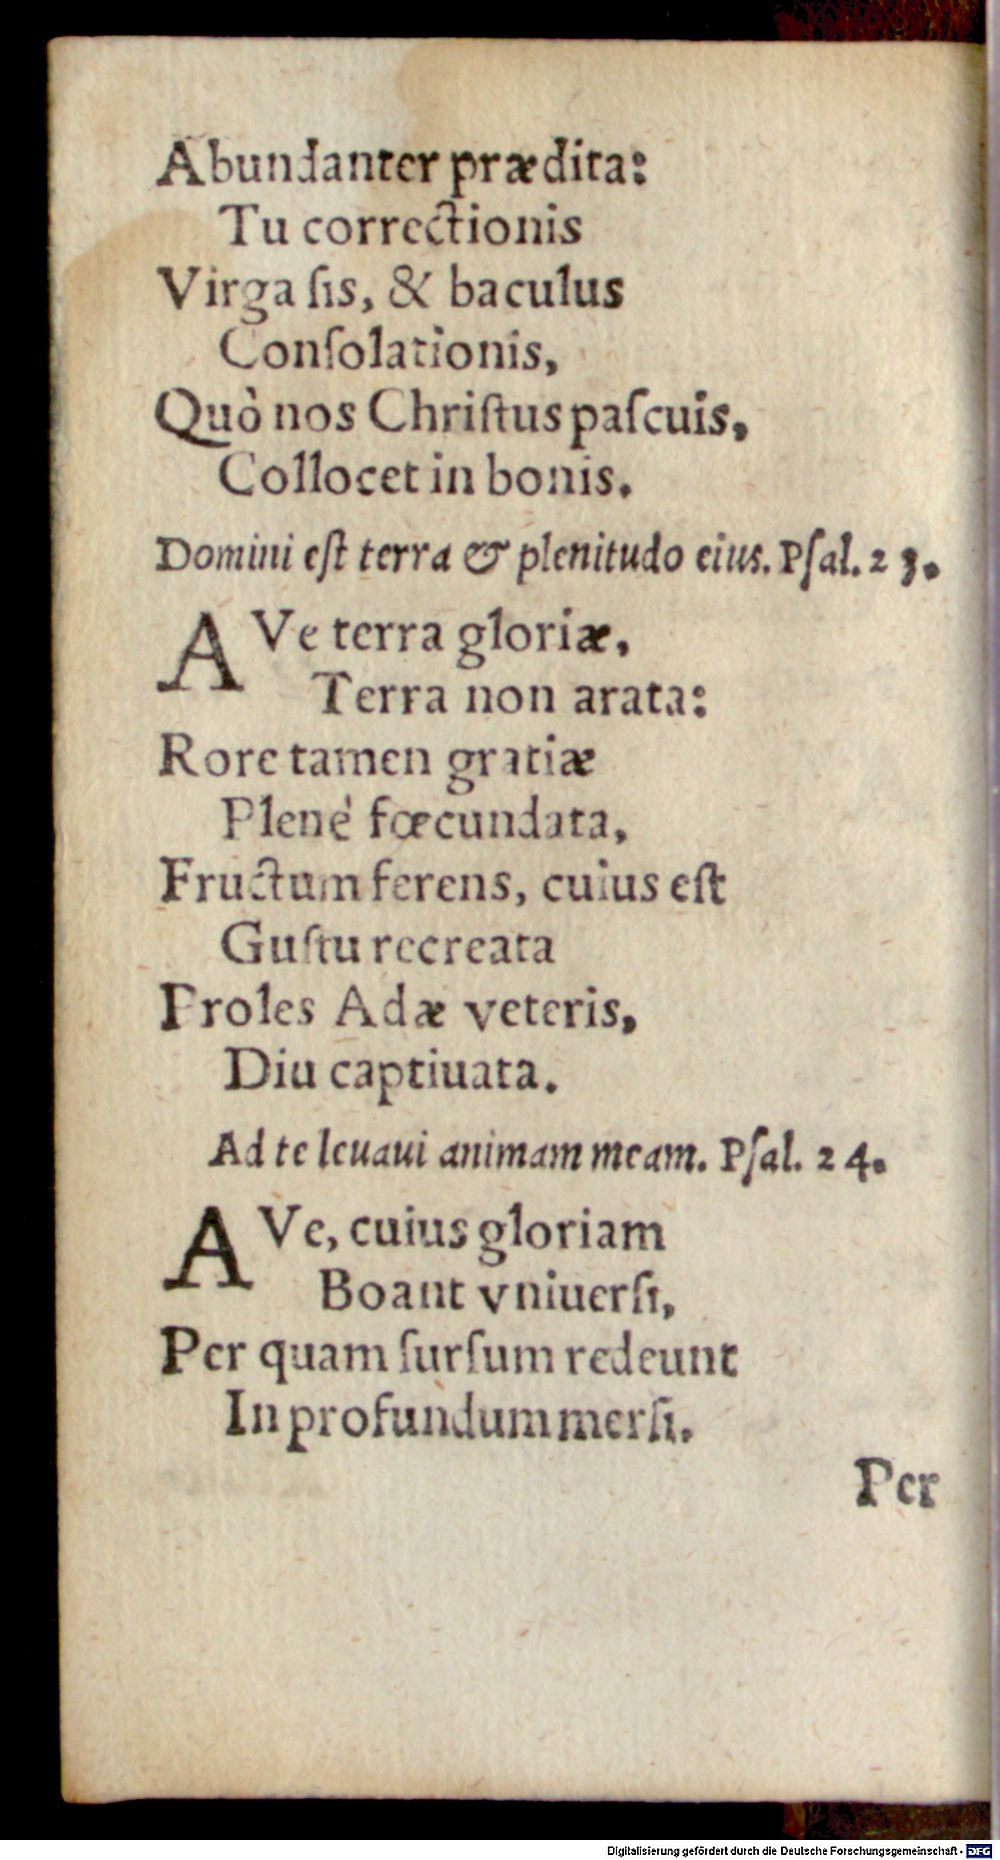 Abundanter prædita:
Tu correctionis
Virga ſis, & baculus
Conſolationis,
Quò nos Chriſtus paſcuis,
Collocet in bonis.
Domini eſt terra & plenitudo eius. Pſal. 23.
AVe terra gloriæ,
Terra non arata:
Rore tamen gratiæ
Plenè fœcundata,
Fructum ferens, cuius eſt
Guſtu recreata
Proles Adæ veteris,
Diu captiuata.
Ad te leuaui animam meam. Pſal. 24.
AVe, cuius gloriam
Boant vniuerſi,
Per quam ſurſum redeunt
In profundum merſi.
Per
Digitalisierung gefördert durch die Deutsche Forschungsgemeinschaft - DFG